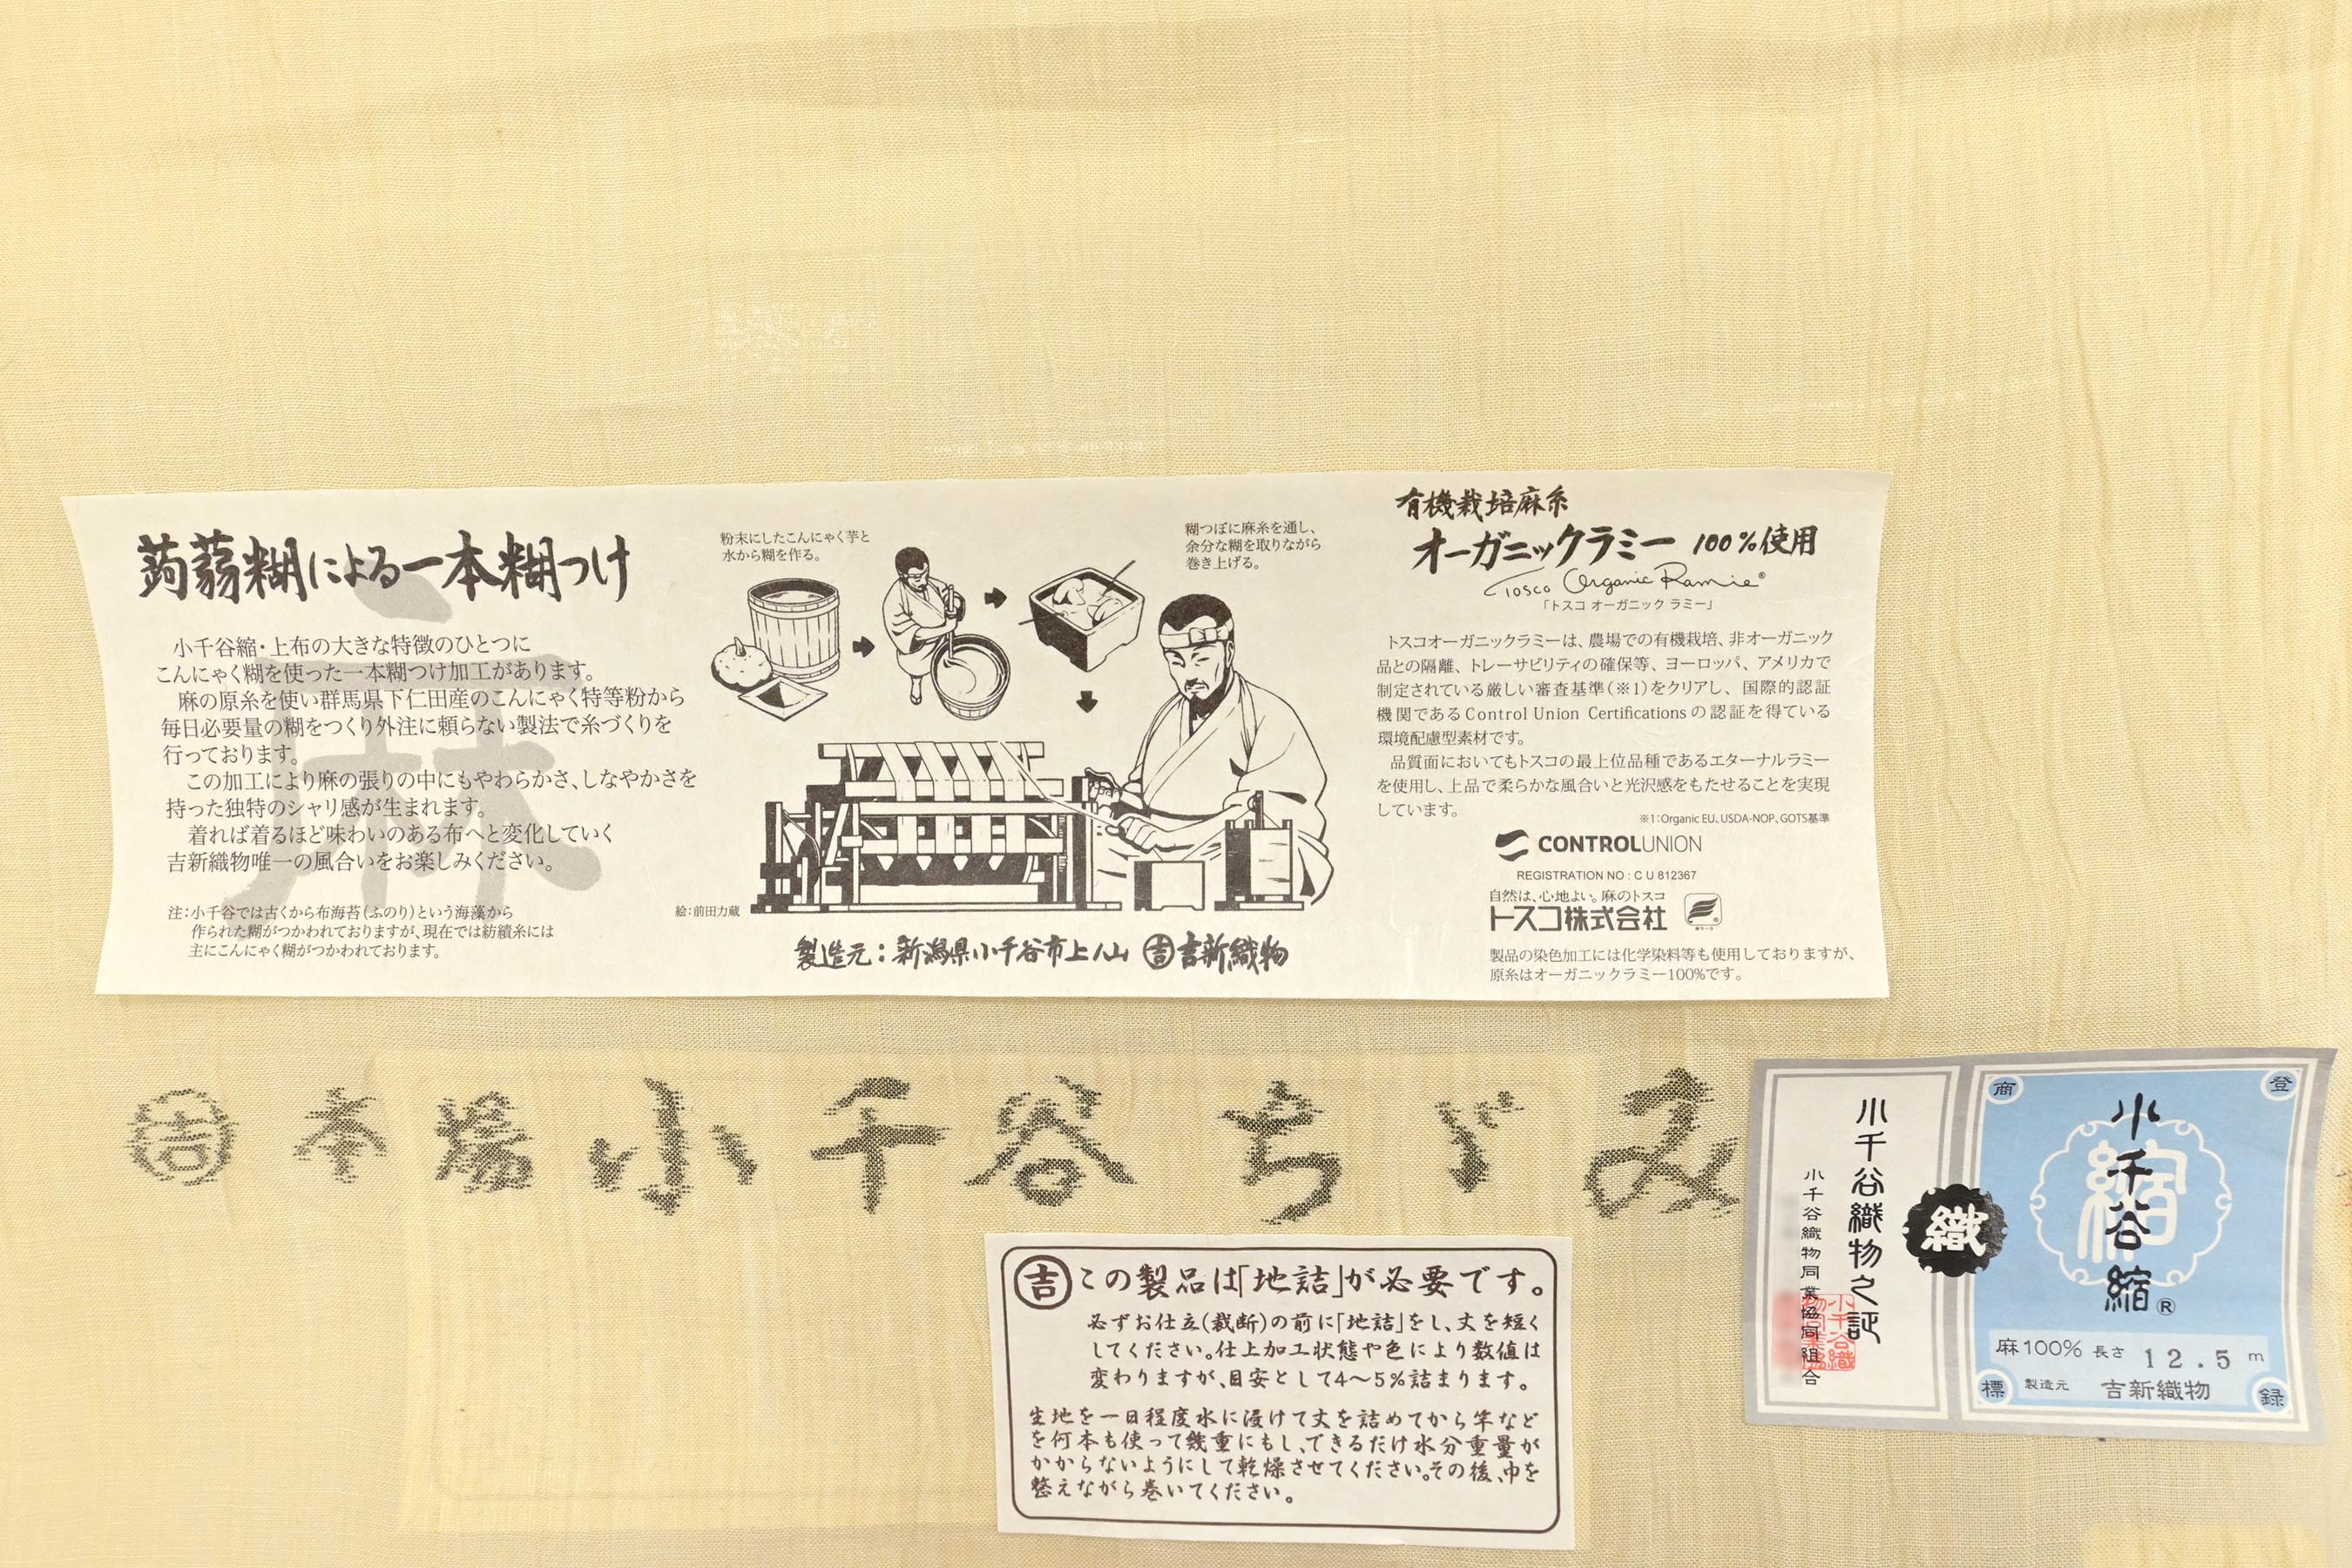 蒟蒻糊による一本糊つけ
小千谷縮・上布の大きな特徴のひとつに
こんにゃく糊を使った一本糊つけ加工があります。
麻の原糸を使い群馬県下仁田産のこんにゃく特等粉から
毎日必要量の糊をつくり外注に頼らない製法で糸づくりを
行っております。
この加工により麻の張りの中にもやわらかさ、しなやかさを
持った独特のシャリ感が生まれます。
着れば着るほど味わいのある布へと変化していく
吉新織物唯一の風合いをお楽しみください。
注：小千谷では古くから布海苔（ふのり）という海藻から
作られた糊がつかわれておりますが、現在では紡績糸には
主にこんにゃく糊がつかわれております。
麻
粉末にしたこんにゃく芋と
水から糊を作る。
糊つぼに麻糸を通し、
余分な糊を取りながら
巻き上げる。
絵：前田力蔵
製造元：新潟県小千谷市上ノ山 吉 吉新織物
有機栽培麻糸
オーガニックラミー 100%使用
Tosco Organic Ramie®
「トスコ オーガニック ラミー」
トスコオーガニックラミーは、農場での有機栽培、非オーガニック
品との隔離、トレーサビリティの確保等、ヨーロッパ、アメリカで
制定されている厳しい審査基準（※1）をクリアし、国際的認証
機関であるControl Union Certificationsの認証を得ている
環境配慮型素材です。
品質面においてもトスコの最上位品種であるエターナルラミー
を使用し、上品で柔らかな風合いと光沢感をもたせることを実現
しています。
※1：Organic EU、USDA-NOP、GOTS基準
CONTROLUNION
REGISTRATION NO : C U 812367
自然は、心地よい。麻のトスコ
トスコ株式会社
製品の染色加工には化学染料等も使用しておりますが、
原糸はオーガニックラミー100%です。
吉 本場小千谷ちゞみ
吉 この製品は「地詰」が必要です。
必ずお仕立(裁断)の前に「地詰」をし、丈を短く
してください。仕上加工状態や色により数値は
変わりますが、目安として4〜5%詰まります。
生地を一日程度水に浸けて丈を詰めてから竿など
を何本も使って幾重にもし、できるだけ水分重量が
かからないようにして乾燥させてください。その後、巾を
整えながら巻いてください。
小千谷織物之証
小千谷織物同業協同組合
織
登
録
商
標
縮
小千谷縮®
麻100% 長さ 12.5 m
製造元 吉新織物